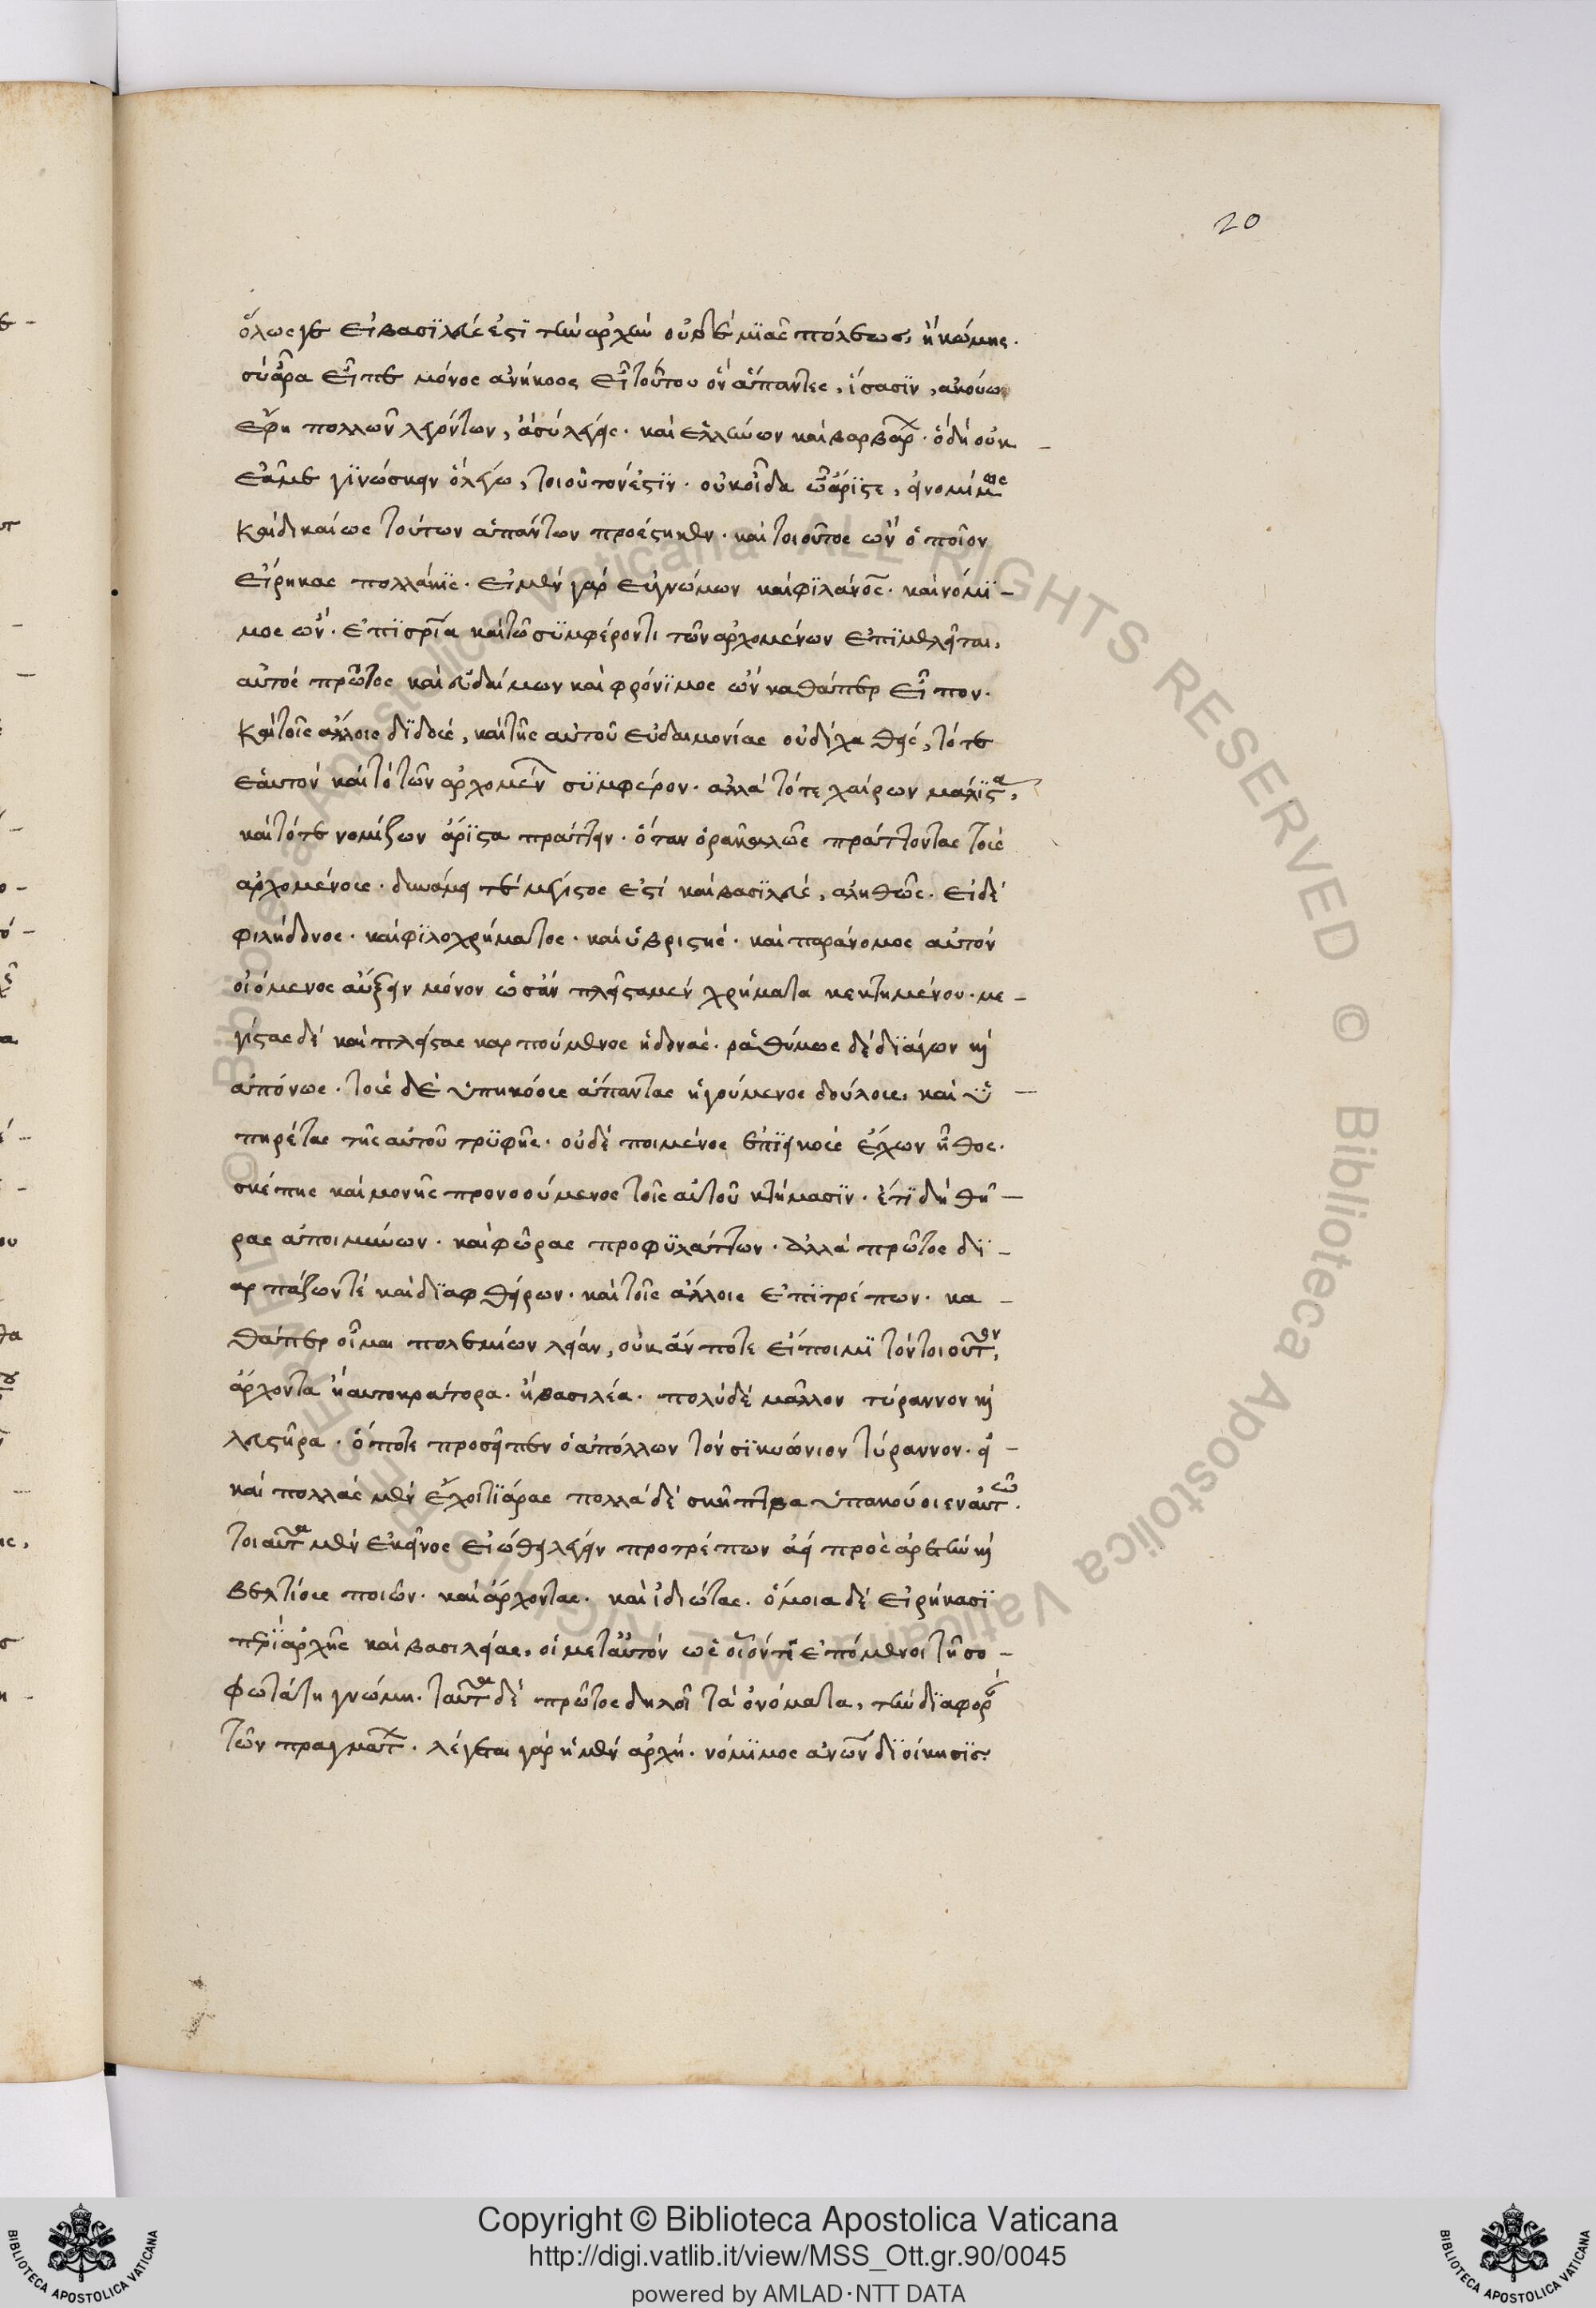 20
ὅλως γε εἰ βασϊλεύς ἐστϊ τὴν ἀρχὴν οὐδὲ μϊᾶς πόλεως, ἢ κώμης.
σὺ ἄρα εἶπε μόνος ἀνήκοος εἶ τούτου ὃν ἅπαντες, ἴσασϊν, ἀκούω
ἔφη πολλῶν λεγόντων, ἃ σὺ λέγεις. καὶ ἑλλήνων καὶ βαρβάρων. ὃ δὴ οὐκ –
ἐᾷ με γϊνώσκειν ὃ λέγω, τοιοῦτον ἐστϊν. οὐκ οἶδα ὦ ἄρϊστε, εἰ νομίμως
καὶ δικαίως τούτων ἁπάντων προέστηκεν. καὶ τοιοῦτος ὢν ὁποῖον
εἴρηκας πολλάκϊς. εἰ μὲν γὰρ εὐγνώμων καὶ φϊλάνος. καὶ νόμϊ –
μος ὢν. ἐπϊ σρία καὶ τῶ συμφέροντι τῶν ἀρχομένων ἐπϊμελεῖται,
αὐτὸς πρῶτος καὶ εὐδαίμων καὶ φρόνϊμος ὢν καθάπερ εἶπον.
καὶ τοῖς ἄλλοις δϊδοὺς, καὶ τῆς αὐτοῦ εὐδαιμονίας οὐ δίχα θεὶς, τό τε
ἑαυτοῦ καὶ τὸ τῶν ἀρχομένων συμφέρον. ἀλλὰ τότε χαίρων μάλϊστα,
καὶ τότε νομίζων ἄρϊστα πράττειν. ὅταν ὁρᾶ καλῶς πράττοντας τοὺς
ἀρχομένους. δυνάμει τε μέγιστος ἐστὶ καὶ βασϊλεὺς, ἀληθῶς. εἰ δὲ
φιλήδονος. καὶ φϊλοχρήματος. καὶ ὑβριστὴς. καὶ παράνομος αὐτὸν
οἰόμενος αὔξειν μόνον ὡς ἂν πλεῖστα μὲν χρήματα κεκτημένου. με –
γίστας δὲ καὶ πλείστας καρπούμενος ἡδονάς. ῥαθύμως δὲ δϊάγων καὶ
ἀπόνως. τοὺς δὲ ὑπηκόους ἅπαντας ἡγούμενος δούλους, καὶ ὑ –
πηρέτας τῆς αὐτοῦ τρυφῆς. οὐδὲ ποιμένος ἐπϊεικοῦς ἔχων ἦθος.
σκέπης καὶ μονῆς προνοούμενος τοῖς αὐτοῦ κτήμασϊν. ἔτϊ δὴ θῆ –
ρας ἀποιμύνων. καὶ φῶρας προφυλάττων. ἀλλὰ πρῶτος δϊ –
αρπάζων τὲ καὶ δϊαφθείρων. καὶ τοῖς ἄλλοις ἐπϊτρέπων. κα –
θάπερ οἶμαι πολεμίων λείαν, οὐκ ἄν ποτε εἴποιμϊ τὸν τοιοῦτον,
ἄρχοντα ἢ αὐτοκράτορα. ἢ βασιλέα. πολὺ δὲ μᾶλλον τύραννον καὶ
λευστῆρα. ὅποτε προσεῖπεν ὁ ἀπόλλων τὸν σϊκυώνιον τύραννον. εἰ –
καὶ πολλὰς μὲν ἔχοι τϊάρας πολλὰ δὲ σκῆπτρα ὑπακούοιεν αὐτῶ.
τοιαῦτα μὲν ἐκεῖνος εἰώθει λέγειν προτρέπων ἀεὶ πρὸς ἀρετὴν καὶ
βελτίους ποιῶν. καὶ ἄρχοντας. καὶ ἰδιώτας. ὅμοια δὲ εἰρήκασϊ
περϊ ἀρχῆς καὶ βασιλείας, οἱ μετ αὐτὸν ὡς οἷον τε ἑπόμενοι τῆ σο –
φωτάτη γνώμη. ταῦτα δὲ πρῶτος δηλοῖ τὰ ὀνόματα, τὴν δϊαφορὰν
τῶν πραγμάτων. λέγεται γὰρ ἡ μὲν ἀρχὴ. νόμϊμος ἀνων δϊοίκησϊς:
Copyright © Biblioteca Apostolica Vaticana
http://digi.vatlib.it/view/MSS_Ott.gr.90/0045
powered by AMLAD·NTT DATA
BIBLIOTECA APOSTOLICA VATICANA
BIBLIOTECA APOSTOLICA VATICANA